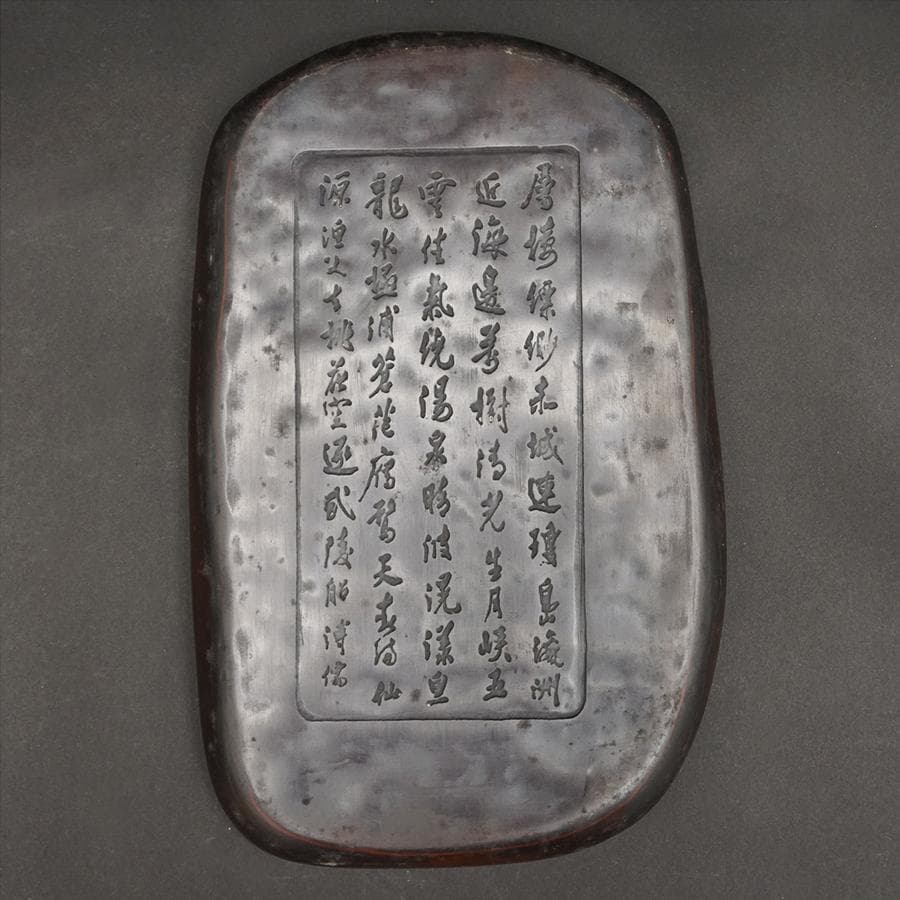 層樓縹緲赤城連瓊島瀛洲
近海邊萬樹清光生月峽五
雲佳氣繞湯泉晴波滉漾魚
龍水極浦蒼茫雁鶩天仙
源漁父桃花空逐武陵船溥儒